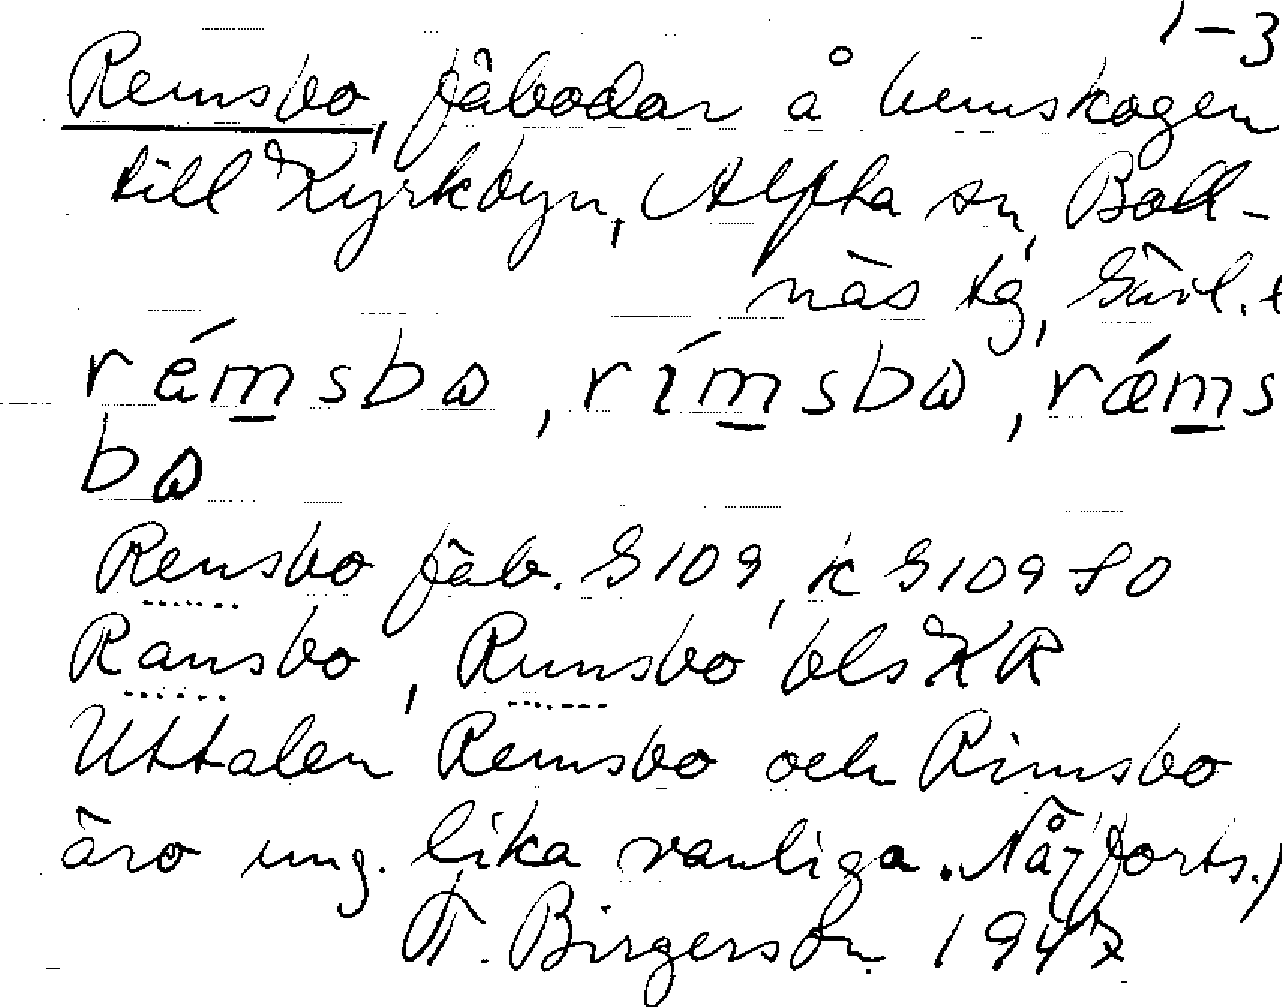 1-3
Remsbo, fäbodar å hemskogen
till Kyrkbyn, Alfta sn, Boll-
näs tg, Gävl. l
rémsbɷ, rímsbɷ, rǽms
bɷ
Rensbo fäb. G109, k G109 SO
Ransbo, Runsbo bls KR
Uttalen Remsbo och Rimsbo
äro ung. lika vanliga. Nå- forts.)
T. Birgersson 1947